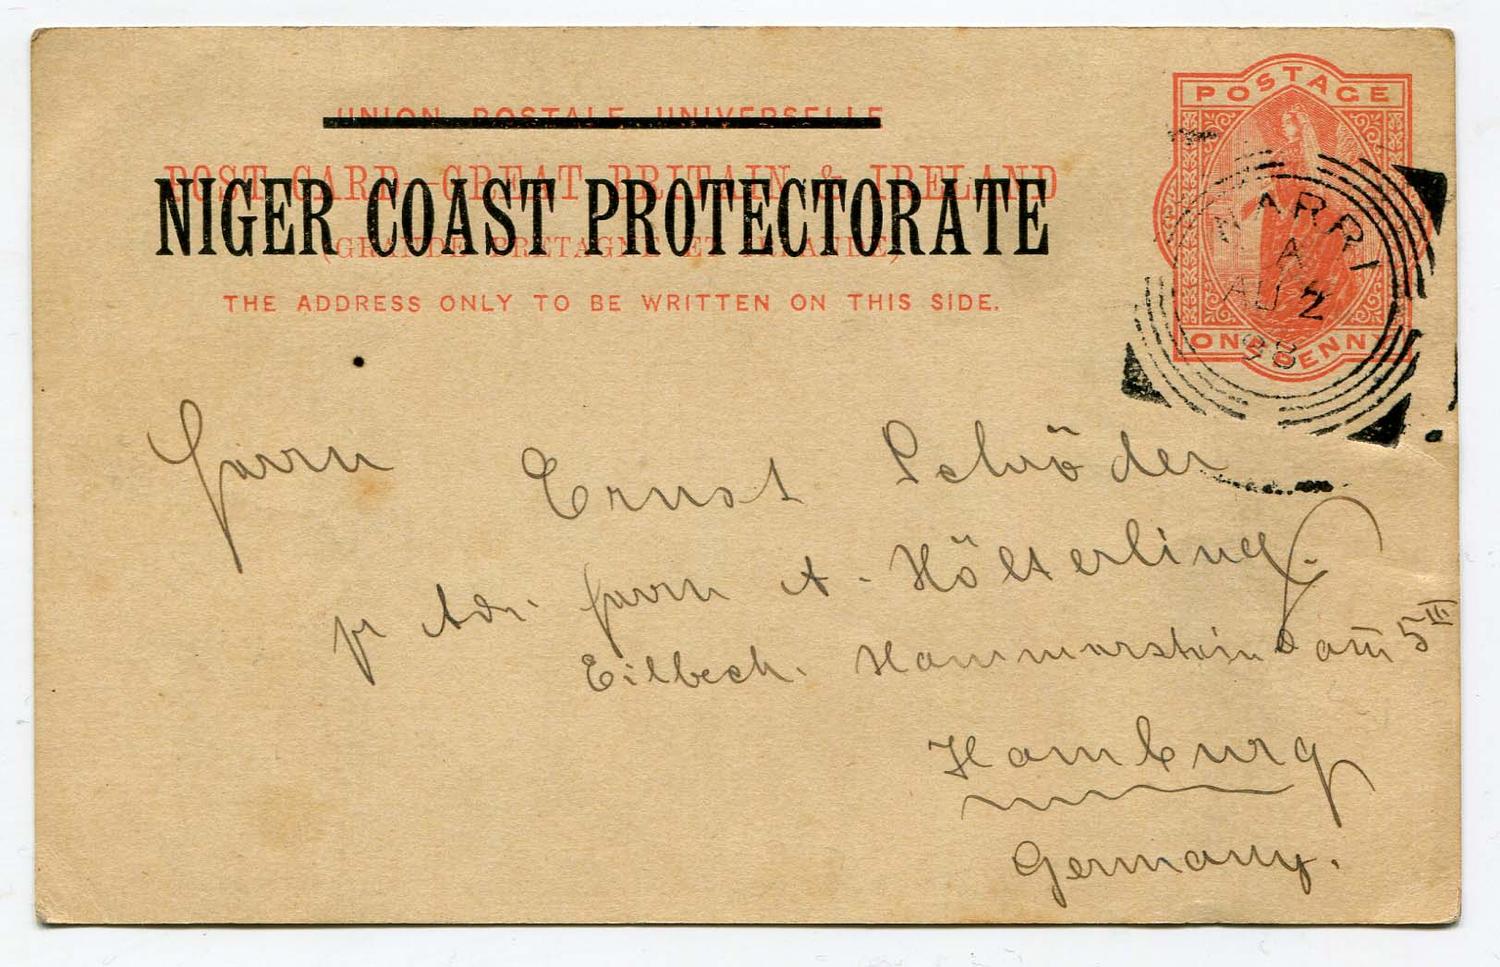 UNION POSTALE UNIVERSELLE
POST CARD GREAT BRITAIN & IRELAND
NIGER COAST PROTECTORATE
(GRANDE BRETAGNE ET IRLANDE)
THE ADDRESS ONLY TO BE WRITTEN ON THIS SIDE.
POSTAGE
ONE PENNY
WARRI
A
AU 2
98
Herrn Ernst Schröder
pr Adr. Herrn A. Hölterling.
Eilbeck. Hammerstein 5 III
Hamburg
Germany.